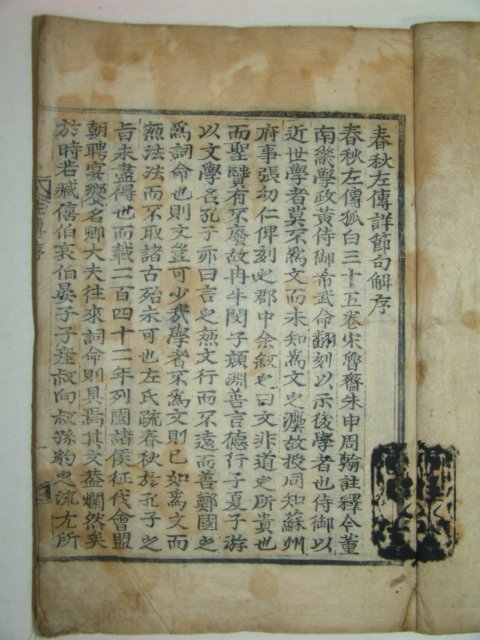 春秋左傳詳節句解序
春秋左傳狐白三十五卷宋魯齋朱申周翰註釋今董
南畿學政黃侍御希武命翻刻以示後學者也侍御以
近世學者莫不爲文而未知爲文之法故授同知蘇州
府事張幼仁俾刻之郡中余叙之曰文非道之所貴也
而聖賢有不廢故冉牛閔子顔淵善言德行子夏子游
以文學名孔子亦曰言之無文行而不遠而善鄭國之
爲詞命也則文豈可少哉學者不爲文則已如爲文而
無法法而不取諸古殆未可也左氏疏春秋於孔子之
旨未盡得也而載二百四十二年列國諸侯征伐會盟
朝聘宴饗名卿大夫往來詞命則具焉其文蓋爛然矣
於時若臧僖伯哀伯晏子子産叔向叔孫豹之流尤所